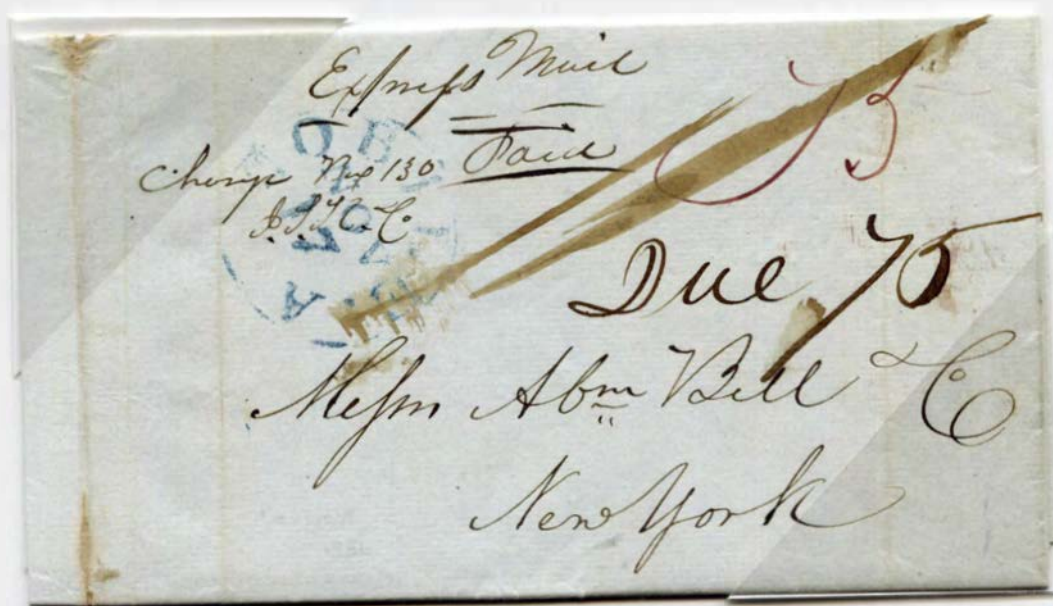 Express Mail
Paid
Charge Box 130
75
Due 75
Messrs Abm Bell & Co
New York